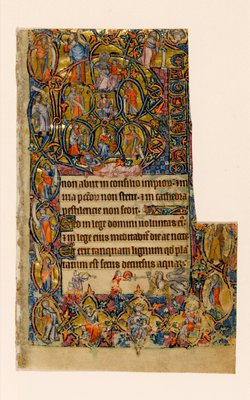 non abiit in consilio impior⁊ in
uia pccoꝝ non stetit ⁊ in cathedra
pestilencie non sedit
Sed in lege domini uoluntas ei⁹
⁊ in lege eius meditabit᷑ die ac nocte
Et erit tanquam lignum qd̛ plā
tatum est secus decursus aquaꝝ